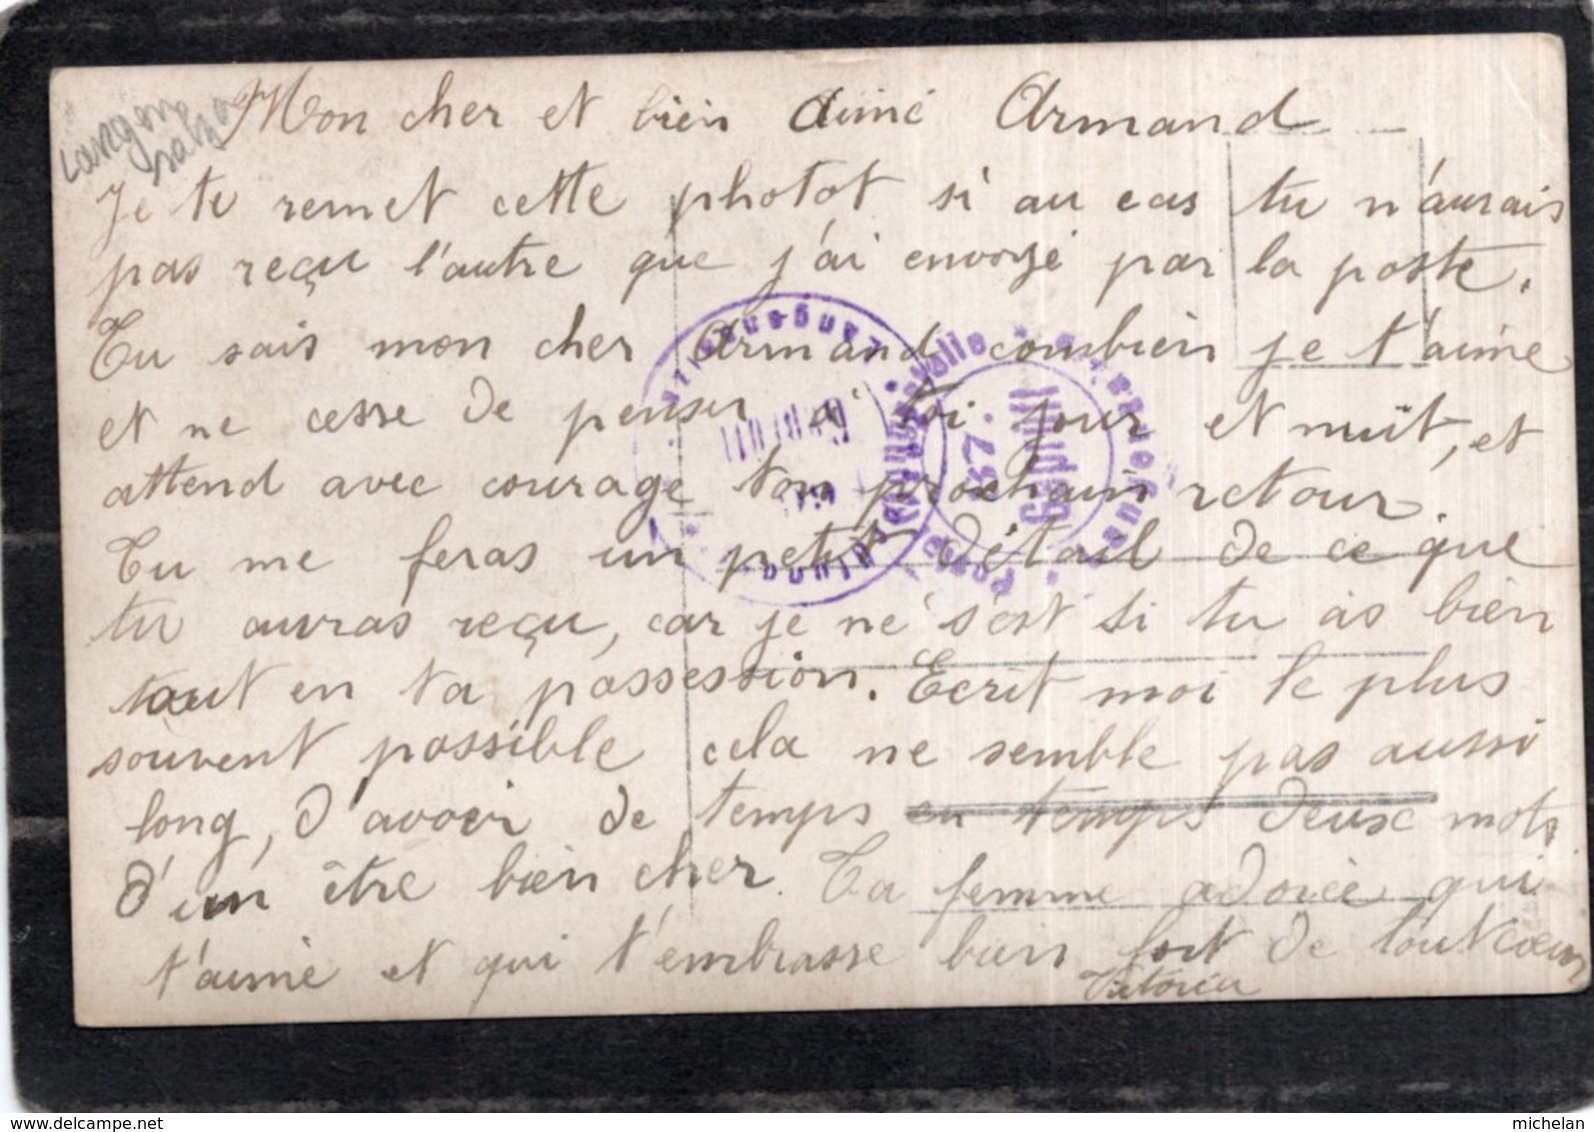 Langensalza
Mon cher et bien aimé Armand
Je te remet cette photot si au cas tu n'aurais
pas reçu l'autre que j'ai envoyé par la poste.
Tu sais mon cher Armand combien je t'aime
et ne cesse de penser a toi jour et nuit, et
attend avec courage ton prochain retour.
Tu me feras un petit détail de ce que
tu auras reçu, car je ne s'est si tu as bien
tout en ta possession. Ecrit moi le plus
souvent possible cela ne semble pas aussi
long, d'avoir de temps en temps deux mots
d'un être bien cher. Ta femme adorée qui
t'aime et qui t'embrasse bien fort de tout coeur
Victoria
Geprüft
27.
Geprüft
Langensalza
delcampe.net
michelan